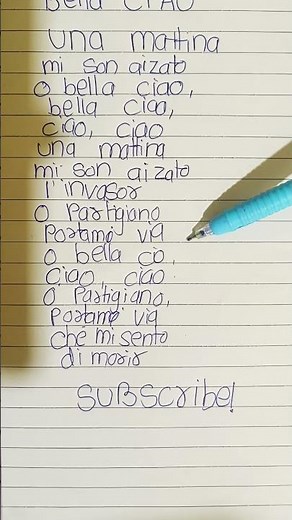 Bella CIAO
una mattina
mi son aizato
o bella ciao,
bella ciao,
ciao, ciao
una mattina
mi son aizato
l'invasor
o Partigiano
Portami via
o bella cio,
ciao, ciao.
o Partigiano,
Portami via
che mi sento
di morir
SUBScribe!